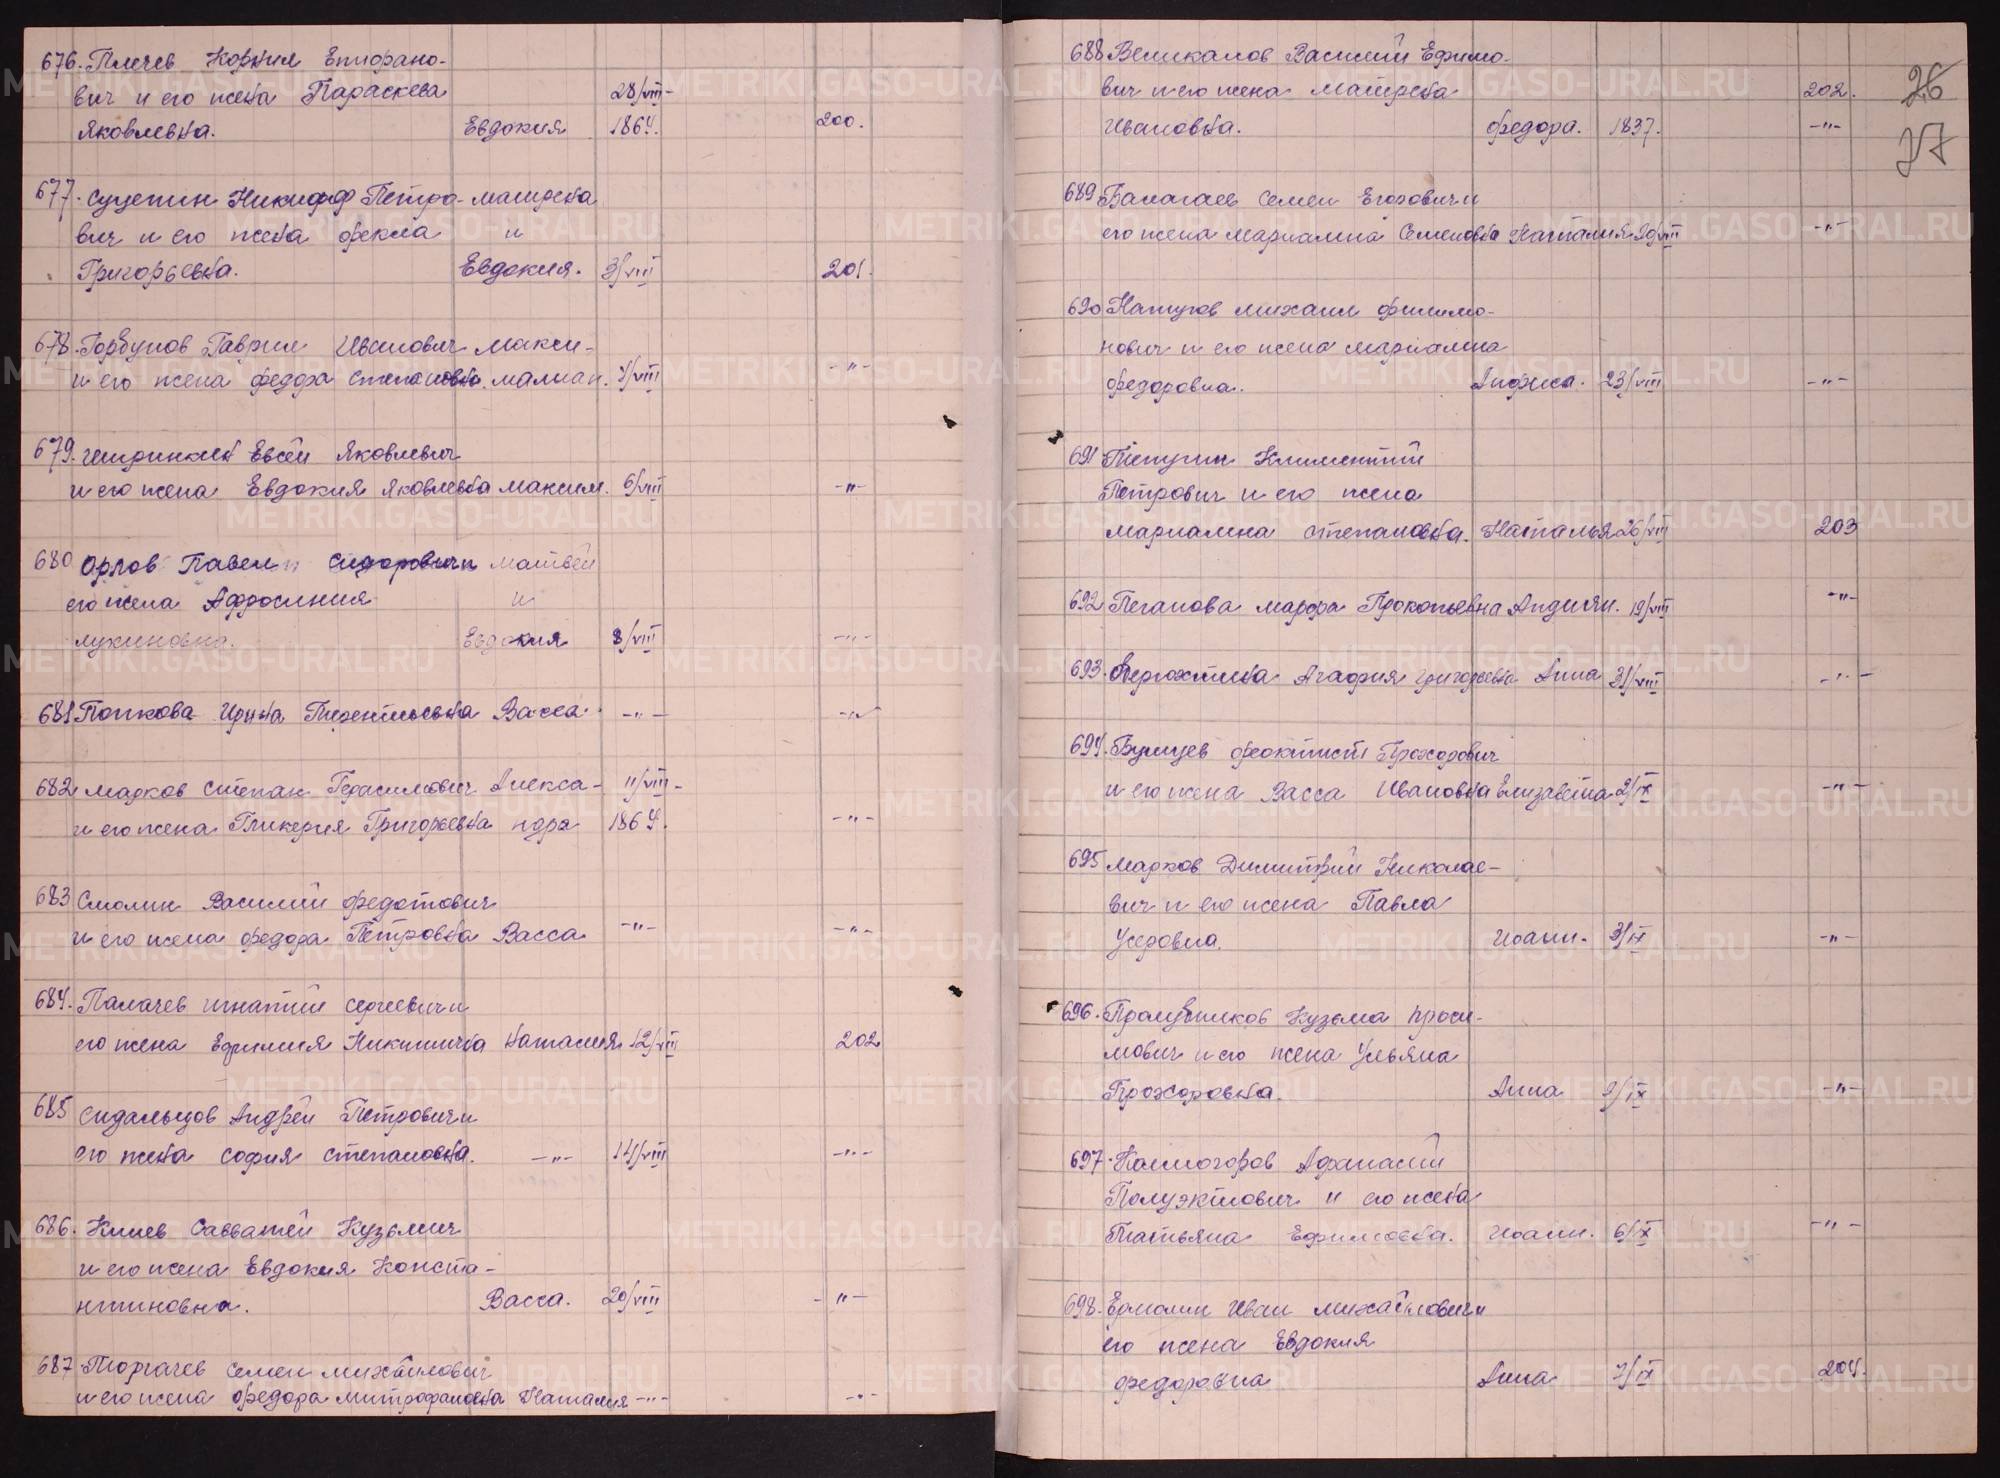 676. Плечев Корнил Епифано-
вич и его жена Параскева 28/VIII-
Яковлевна. Евдокия 1864. 200.
677. Суцепин Никифор Петро- матрена
вич и его жена фекла и
Григорьевна. Евдокия. 3/VIII 201.
678. Горбунов Гаврил Иванович Макси-
и его жена федора степановна. малиан. 4/VIII -"-
679. Евсей Яковлевич
и его жена Евдокия Яковлевна максим. 6/VIII -"-
680 Орлов Павел Сидорович и матвей
его жена Афросиния и
лукиновна. Евдокия 8/VIII -"-
681 Попкова Ирина Терентьевна Васса. -"- -"-
682 марков степан Герасимович Алекса- 11/VIII-
и его жена Гликерия Григорьевна ндра 1864. -"-
683 Смолин Василий федотович
и его жена федора Петровна Васса -"- -"-
684. Палачев игнатий сергеевич и
его жена Ефимия Никитична наталия. 12/VIII 202
685 сидальцов Андрей Петрович и
его жена софия степановна. -"- 14/VIII -"-
686. Клиев Савватей Кузьмич
и его жена Евдокия Конста-
нтиновна. Васса. 20/VIII -"-
687 Торгачев семен михайлович
и его жена федора митрофановна Наталия -"- -"-
26
27
688 Великалов Василий Ефимо-
вич и его жена матрена 202.
Ивановна. федора. 1837. -"-
689 Балагаев семен Егорович и
его жена мариамна Семеновна Наталия 20/VIII -"-
690 михаил филимо-
нович и его жена мариамна
федоровна. Анфиса. 23/VIII -"-
691 Пичугин Климентий
Петрович и его жена
мариамна степановна. Наталья 26/VIII 203
692 Пеганова марфа Прокопьевна Андиян. 19/VIII -"-
693. Агафия григорьевна Анна 31/VIII -"-
694. феоктист Прохорович
и его жена Васса Ивановна Елизавета 2/IX -"-
695 марков Димитрий Николае-
вич и его жена Павла
Иоанн. 3/IX -"-
696. Кузьма проси-
мович и его жена Ульяна
Прохоровна. Анна 2/IX -"-
697. Колмогоров Афанасий
Полуэктович и его жена
Татьяна Ефимовна. Иоанн. 6/IX -"-
698. Ермолин Иван михайлович и
его жена Евдокия
федоровна Анна 7/IX 204.